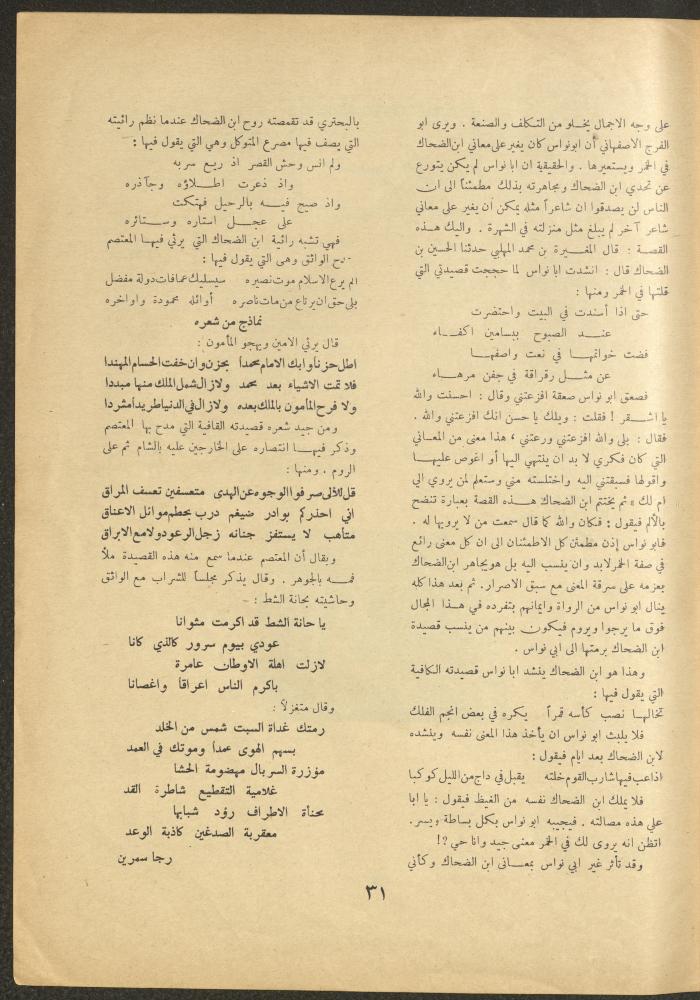 على وجه الاجمال يخلو من التكلف والصنعة . ويرى ابو
الفرج الاصفهاني أن ابونواس كان يغير على معاني ابن الضحاك
في الخمر ويستعيرها . والحقيقية ان ابا نواس لم يكن يتورع
عن تحدي ابن الضحاك ومجاهرته بذلك مطمئناً الى ان
الناس لن يصدقوا ان شاعراً مثله يمكن أن يغير على معاني
شاعر آخر لم يبلغ مثل منزلته في الشهرة . واليك هذه
القصة : قال المغيرة بن محمد المهلبي حدثنا الحسين بن
الضحاك قال : انشدت ابا نواس لما حججت قصيدتي التي
قلتها في الخمر ومنها :
حتى اذا أسندت في البيت واحتضرت
عند الصبوح ببسامين اكفاء
فضت خواتمها في نعت واصفها
عن مثل رقراقة في جفن مرهاء
فصعق ابو نواس صعقة افزعتني وقال : احسنت والله
يا اشقر ! فقلت : ويلك يا حسن انك افزعتني والله .
فقال : بلى والله افزعتني ورعتني ، هذا معنى من المعاني
التي كان فكري لا بد ان ينتهي اليها أو اغوص عليها
واقولها فسبقتني اليه واختلسته مني وستعلم لمن يروي الي
ام لك » ثم يختم ابن الضحاك هذه القصة بعبارة تنضح
بالألم فيقول : فكان والله كما قال سمعت من لا يرويها له .
فابو نواس إذن مطمئن كل الاطمئنان الى ان كل معنى رائع
في صفة الخمر لابد وان ينسب اليه بل هو يجاهر ابن الضحاك
بعزمه على سرقة المعنى مع سبق الاصرار . ثم بعد هذا كله
ينال ابو نواس من الرواة وايمانهم بتفرده في هذا المجال
فوق ما يرجوا ويروم فيكون بينهم من ينسب قصيدة
ابن الضحاك برمتها الى ابي نواس .
وهذا هو ابن الضحاك ينشد ابا نواس قصيدته الكافية
التي يقول فيها :
تخالها نصب كأسه قمراً يكره في بعض انجم الفلك
فلا يلبث ابو نواس ان يأخذ هذا المعنى نفسه وينشده
لابن الضحاك بعد ايام فيقول :
اذا عب فيها شارب القوم خلته يقبل في داج من الليل كوكبا
فلا يملك ابن الضحاك نفسه من الغيظ فيقول : يا ابا
علي هذه مصالته . فيجيبه ابو نواس بكل بساطة ويسر .
اتظن انه يروى لك في الخمر معنى جيد وانا حي ?!
وقد تأثر غير ابي نواس بمعاني ابن الضحاك وكأني
بالبحتري قد تقمصته روح ابن الضحاك عندما نظم رائيته
التي يصف فيها مصرع المتوكل وهي التي يقول فيها :
ولم انس وحش القصر اذ ريع سربه
واذ ذعرت اطلاؤه وجآذره
واذ صيح فيه بالرحيل فهتكت
على عجل استاره وستائره
فهي تشبه رائية ابن الضحاك التي يرثي فيها المعتصم
الواثق وهي التي يقول فيها :
الم يرع الاسلام موت نصيره سيسليك عما فات دولة مفضل
بلى حق ان يرتاع من مات ناصره أوائله محمودة واواخره
نماذج من شعره
قال يرثي الامين ويهجو المأمون :
اطل حزناً وابك الامام محمداً بحزن وان خفت الحسام المهندا
فلا تمت الاشياء بعد محمد ولا زال شمل الملك منها مبددا
ولا فرح المأمون بالملك بعده ولا زال في الدنيا طريداً مشردا
ومن جيد شعره قصيدته القافية التي مدح بها المعتصم
وذكر فيها انتصاره على الخارجين عليه بالشام ثم على
الروم . ومنها :
قل للألى صرفوا الوجوه عن الهدى متعسفين تعسف المراق
اني احذركم بوادر ضيغم درب بحطم موائل الاعناق
متأهب لا يستفز جنانه زجل الرعود ولامع الابراق
ويقال أن المعتصم عندما سمع منه هذه القصيدة ملأ
فمه بالجوهر . وقال يذكر مجلساً للشراب مع الواثق
وحاشيته بحانة الشط : -
يا حانة الشط قد اكرمت مثوانا
عودي بيوم سرور كالذي كانا
لازلت اهلة الاوطان عامرة
باكرم الناس اعراقاً واغصانا
وقال متغزلاً :
رمتك غداة السبت شمس من الخلد
بسهم الهوى عمداً وموتك في العمد
مؤزرة السربال مهضومة الحشا
غلامية التقطيع شاطرة القد
محنأة الاطراف رؤد شبابها
معقربة الصدغين كاذبة الوعد
رجا سمرين
٣١